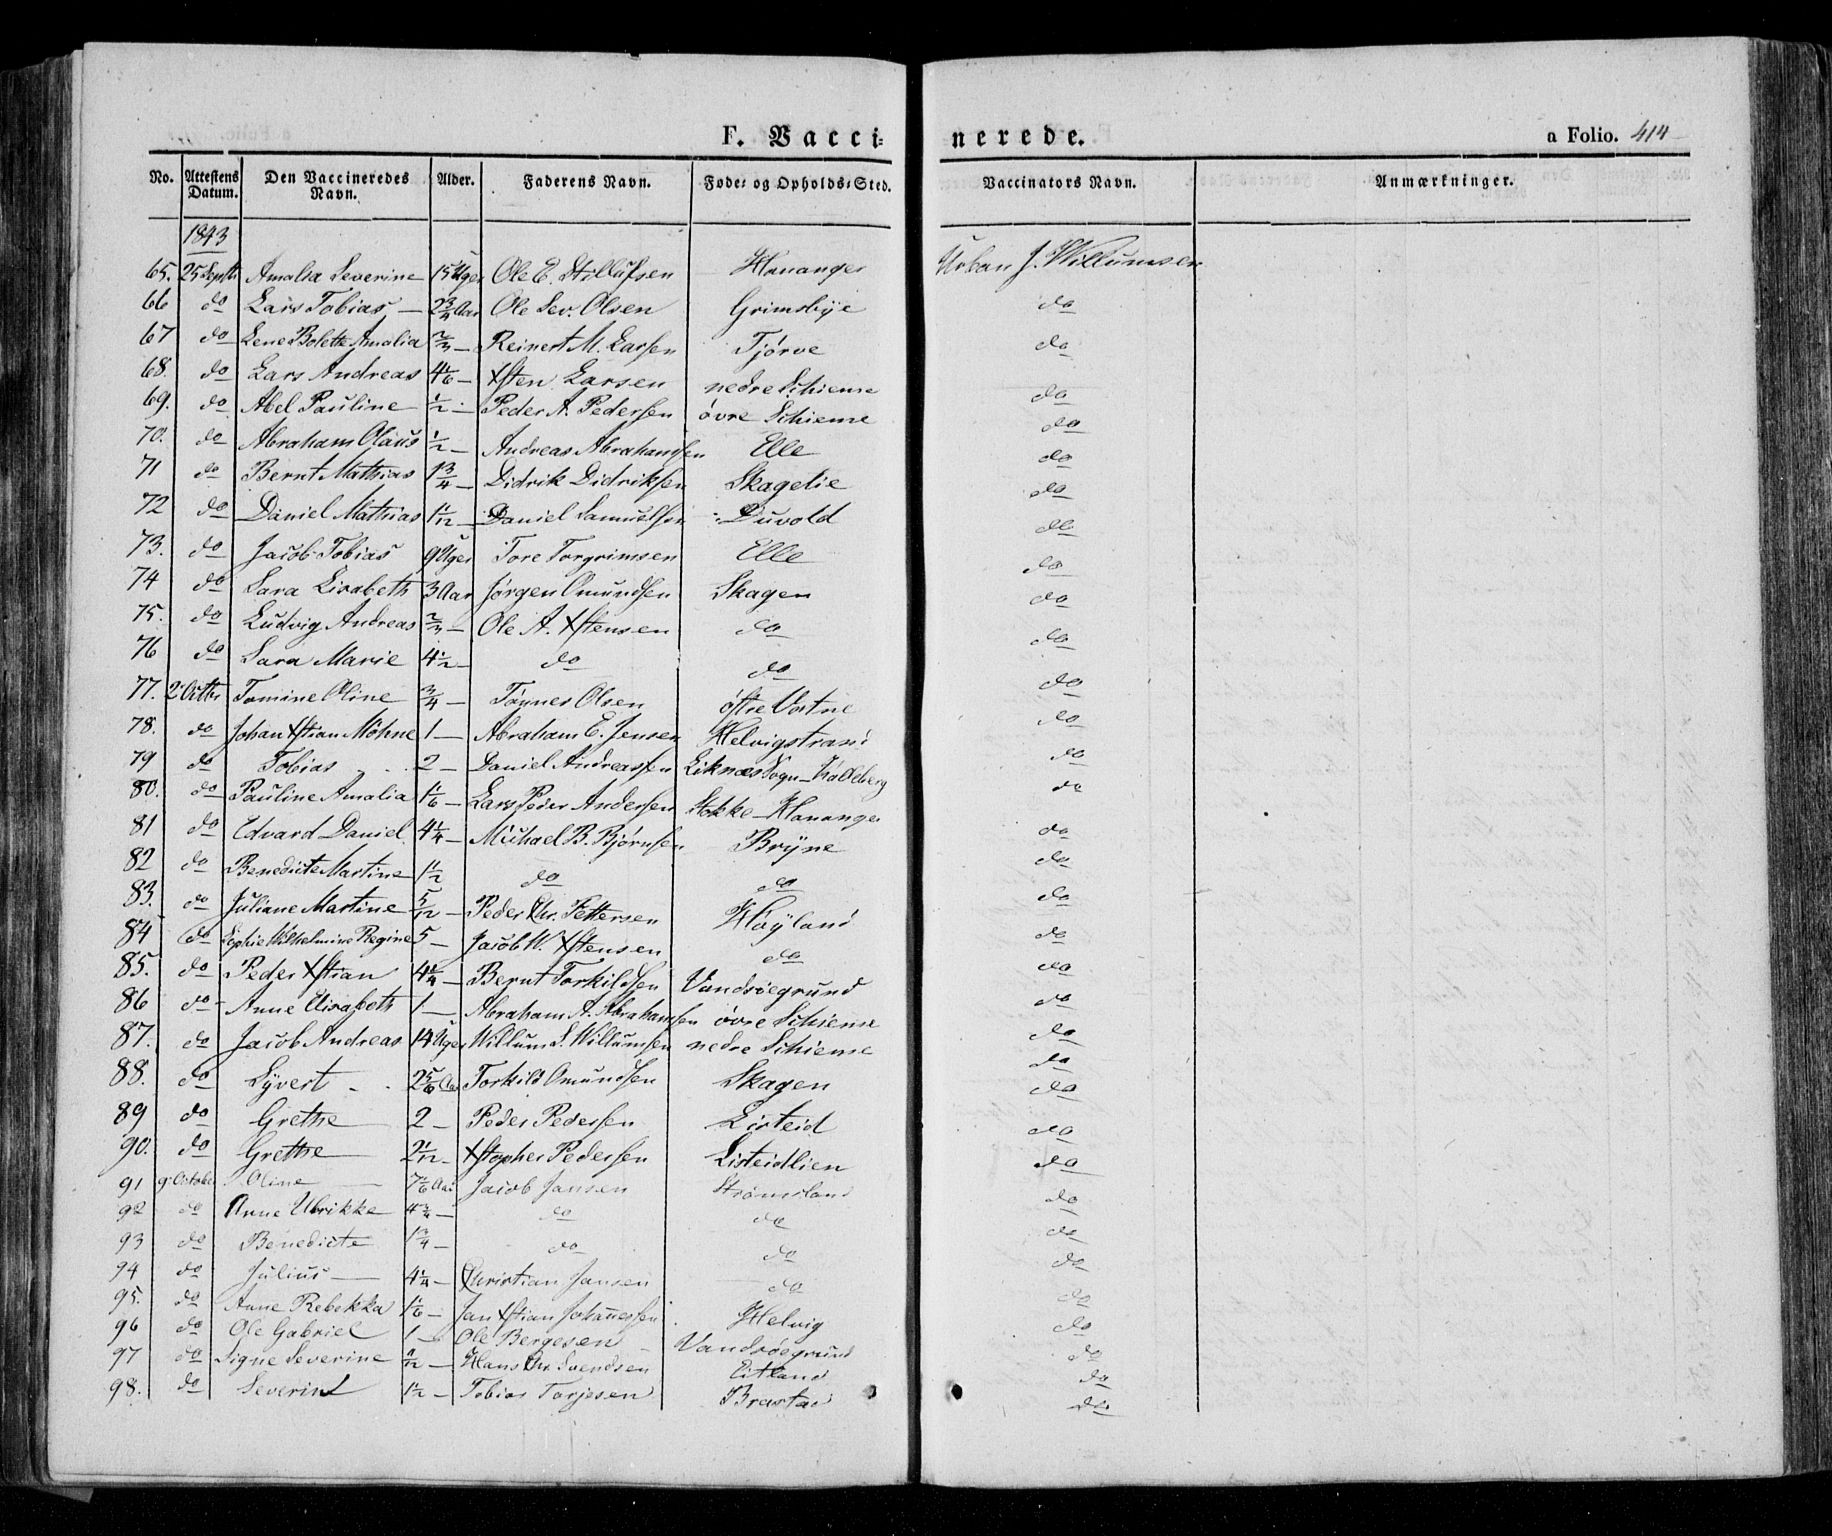 F. Vacci=nerede. a Folio. 414
No. Attestens Datum. Den Vaccineredes Navn. Alder. Faderens Navn. Føde= og Opholds=Sted. Vaccinators Navn. Anmærkninger.
1843
65. 25 Septb Amalia Severine 15 Uger Ole E. Hananger Urban J. Willumsen
66 do Lars Tobias, — 2 3/4 Aar Ole Sev. Olsen Grimsbye do
67 do Lene Bolette Amalia 2/3 — Reinert M. Larsen Tjørve do
68. do Lars Andreas 4 1/6 — Xsten Larsen nedre Schieme do
69. do Abel Pauline 1/2 — Peder A. Pedersen øvre Schieme do
70. do Abraham Olaus 1/2 — Andreas Abrahamsen Elle do
71 do Bernt Mathias 1 3/4 — Didrik Didriksen Skagelie do
72 do Daniel Mathias 1 1/12 — Daniel Samuelsen Duvold do
73. do Jacob Tobias 9 Uger Tore Torgrimsen Elle do
74 do Sara Lisabeth 3 Aar Jørgen Omundsen Skagen do
75. do Ludvig Andreas 2/3 — Ole A. Xstensen do do
76 do Sara Marie 4 1/2 — do do do
77. 2 Octbr Tomine Oline 3/4 — Tønnes Olsen østre Vatne do
78. do Johan Xstian Møhne 1 — Abraham E. Jensen Helvigstrand do
79 do Tobias 2 — Daniel Andreassen Liknæs Sogn — Kalleberg do
80. do Pauline Amalia 1 1/6 — Lars Peder Andersen Stokke — Hananger do
81 do Edvard Daniel 4 1/4 — Michael B. Bjørnsen Bryne do
82 do Benedicte Martine 1 1/2 do do do
83. do Juliane Martine 5/12 — Peder Chr. Pettersen Høyland do
84 do Sophie Wilhelmine Regine 5 — Jacob W. Xstensen do do
85. do Peder Xstian 4 1/4 — Bernt Torkildsen Vandsøegrund do
86 do Anne Elisabeth 1 — Abraham A. Abrahamsen øvre Schieme do
87. do Jacob Andreas 14 Uger Willum S. Willumsen nedre Schieme do
88. do Syvert 2 5/6 Aar Torkild Omundsen Skagen do
89 do Grethe 2 — Peder Pedersen Listeid do
90. do Grethe 2 1/12 — Xstopher Pedersen Listeidlien do
91 9 October Oline 7 1/6 Aar Jacob Jansen Strømsland do
92 do Anne Ulrikke 4 3/4 — do do do
93 do Benedicte 1 3/4 — do do do
94 do Julius — 4 1/4 — Christian Jansen do do
95. do Anne Rebekka 1 1/6 — Jan Xstian Johannessen Helvig do
96 do Ole Gabriel 1 — Ole Bergesen Vandsøegrund do
97 do Signe Severine — Hans Chr. Svendsen Eitland do
98. do Severin 1 1/2 — Tobias Tarjesen Brastad do